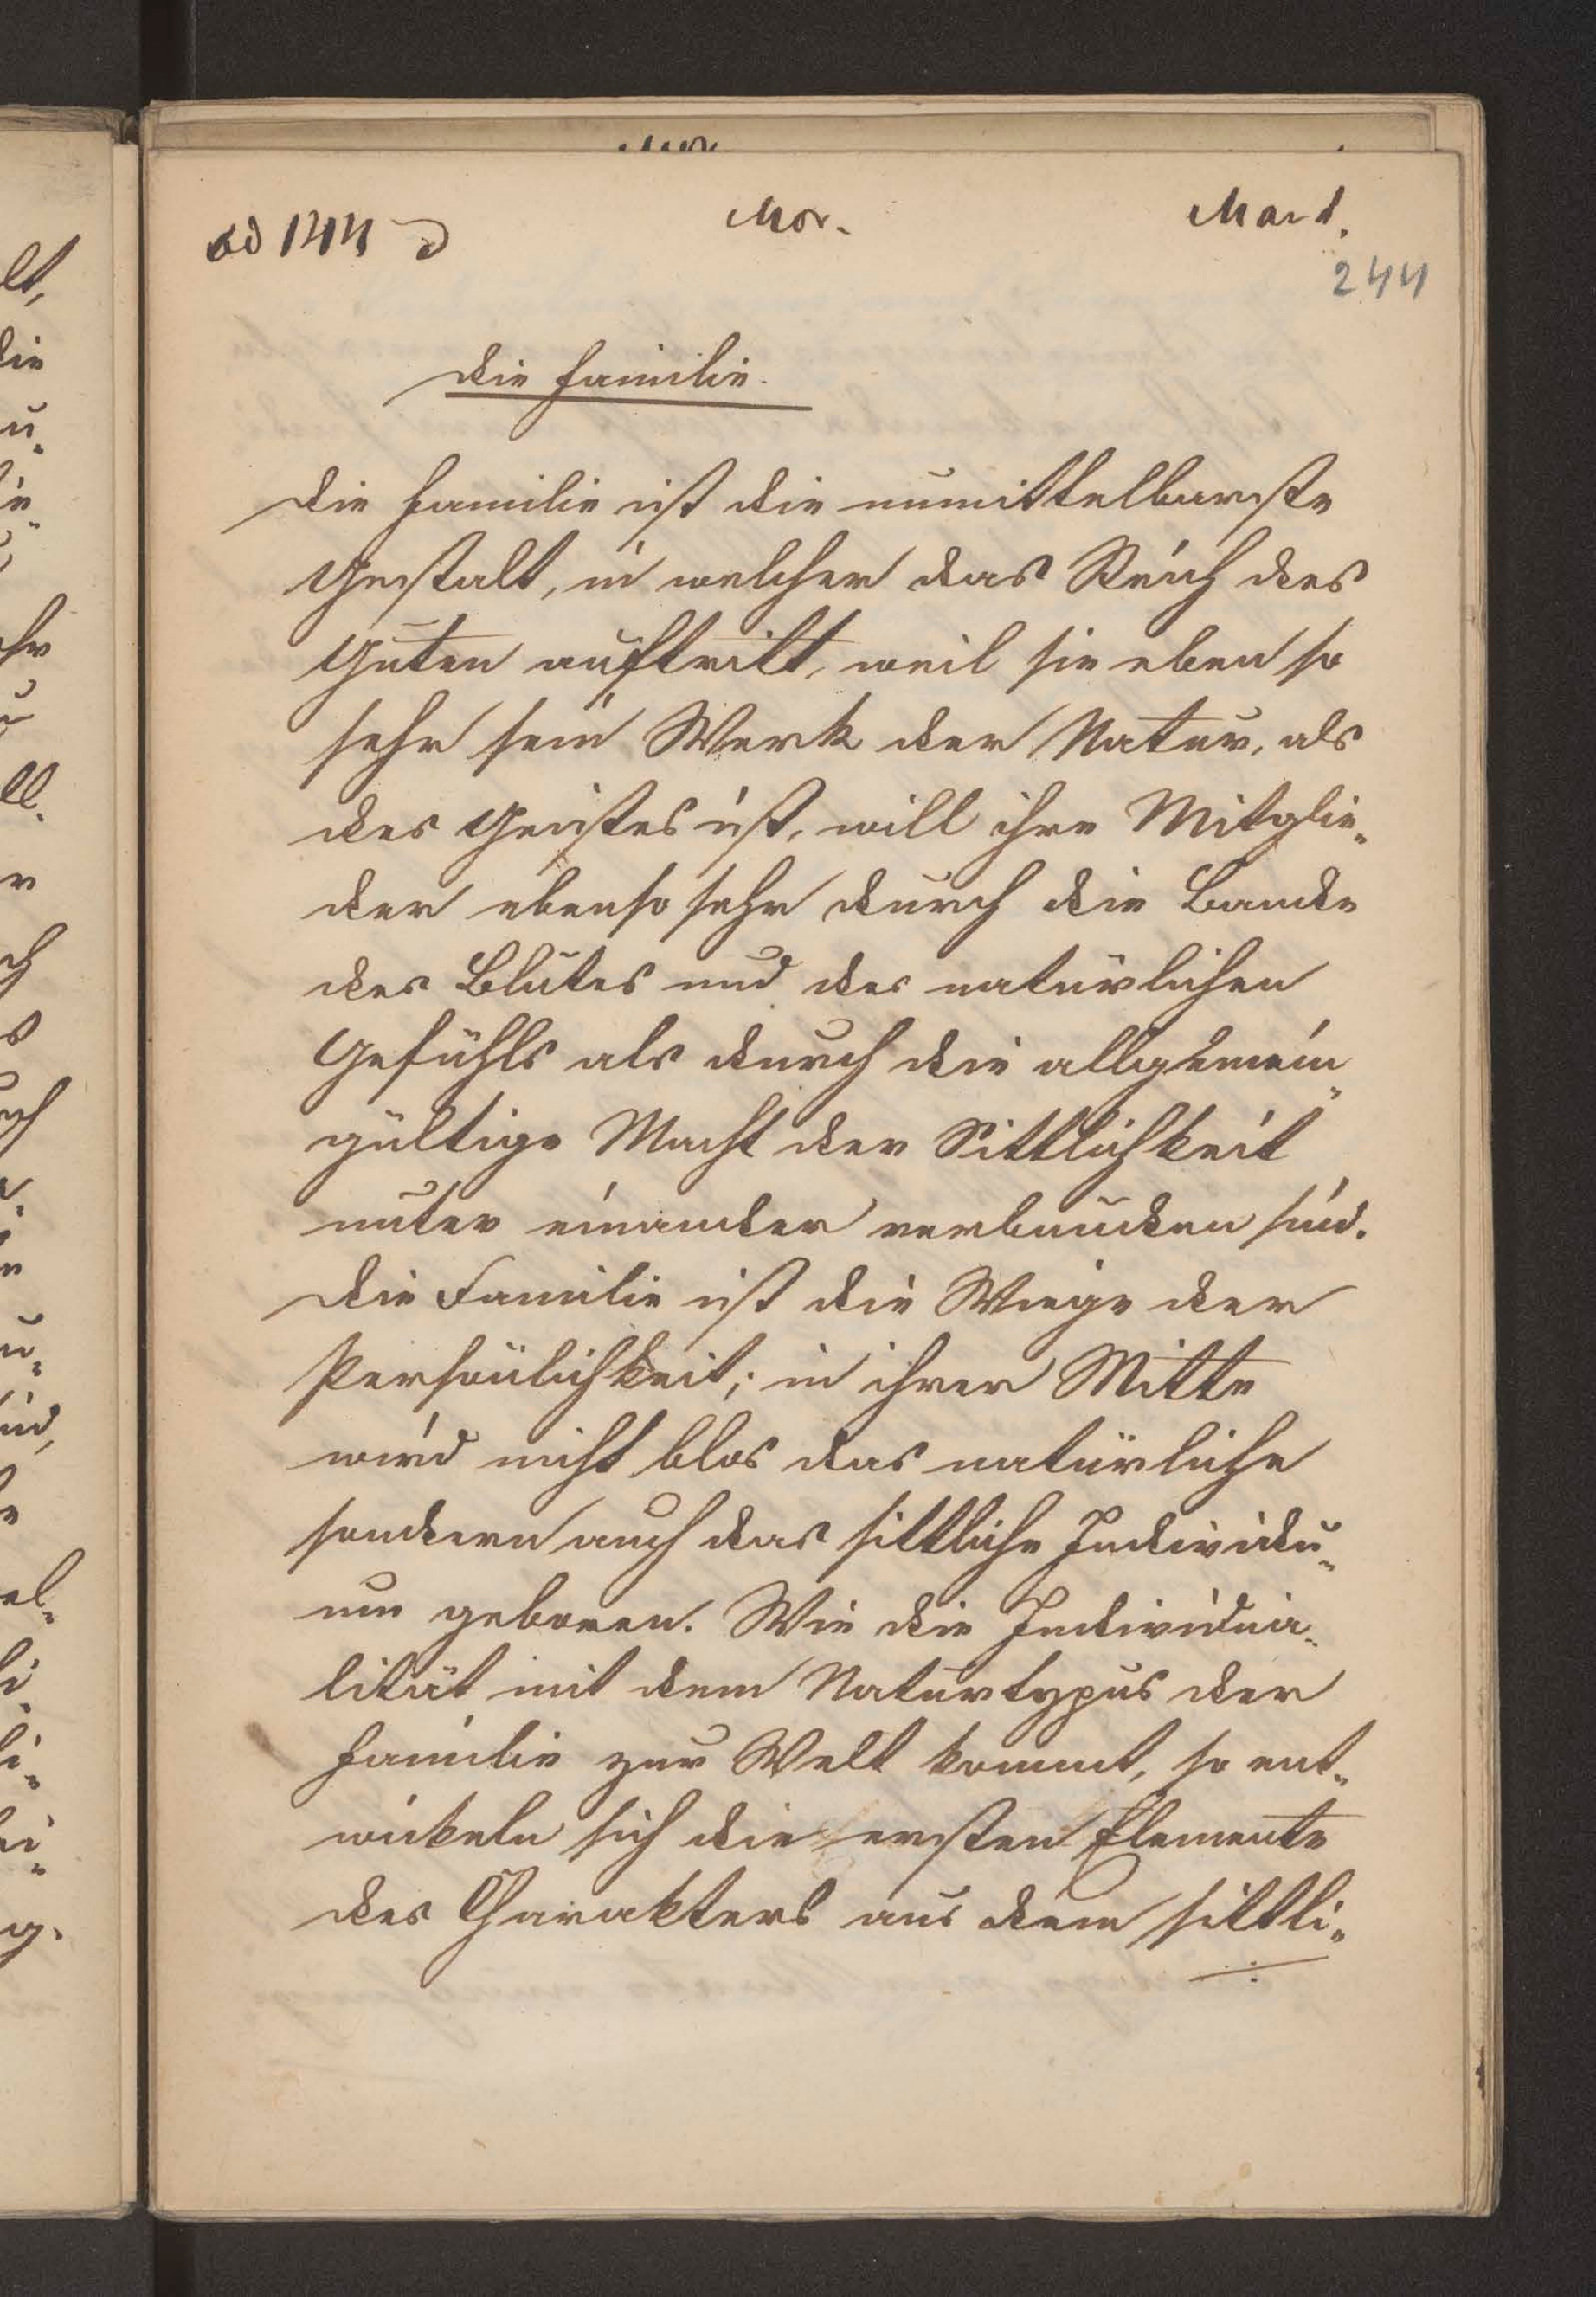 ad 144 d
Mor.
Mard.
244
Die Familie.
Die Familie ist die unmittelbarste
Gestalt, in welcher das Reich des
Guten auftritt, weil sie eben so
sehr sein Werk der Natur, als
des Geistes ist, will ihre Mitglie„
der ebenso sehr durch die Bande
des Blutes und des natürlichen
Gefühls als durch die allgemein„
gültige Macht der Sittlichkeit
unter einander verbunden sind.
Die Familie ist die Wiege der
Persönlichkeit; in ihrer Mitte
wird nicht blos das natürliche
sondern auch das sittliche Individu„
um geboren. Wie die Individua„
lität mit dem Naturtypus der
Familie zur Welt kommt, so ent„
wickeln sich die ersten Elemente
des Charakters aus dem sittli„